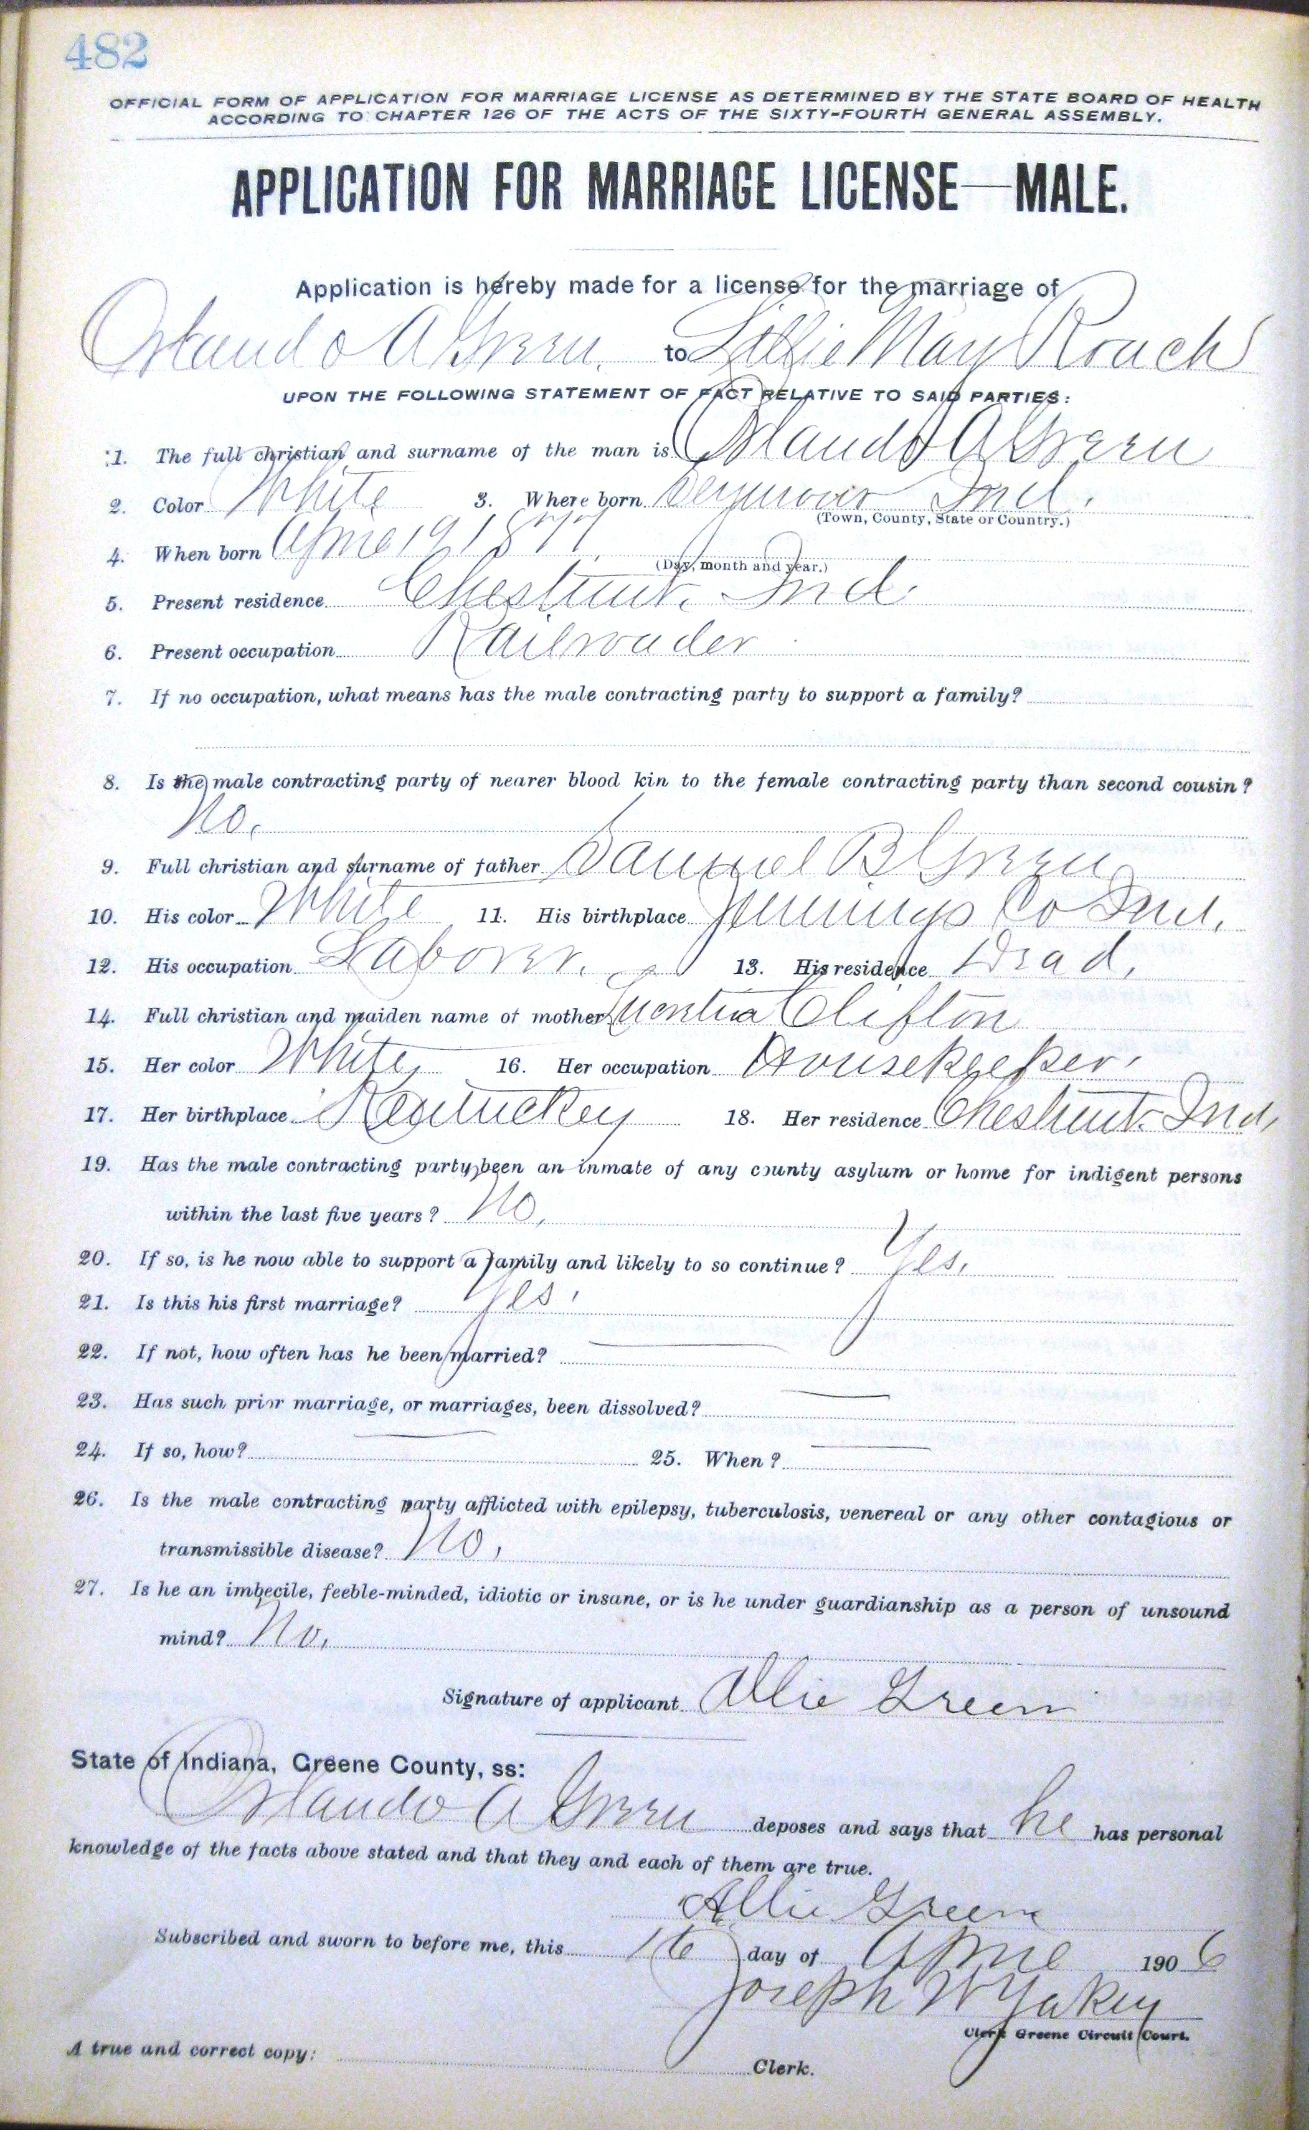 482
OFFICIAL FORM OF APPLICATION FOR MARRIAGE LICENSE AS DETERMINED BY THE STATE BOARD OF HEALTH
ACCORDING TO CHAPTER 126 OF THE ACTS OF THE SIXTY-FOURTH GENERAL ASSEMBLY.
APPLICATION FOR MARRIAGE LICENSE—MALE.
Application is hereby made for a license for the marriage of
Orlando A Green. to Lillie May Roach
UPON THE FOLLOWING STATEMENT OF FACT RELATIVE TO SAID PARTIES:
1. The full christian and surname of the man is Orlando A Green
2. Color White 3. Where born Seymour Ind.
(Town, County, State or Country.)
4. When born April 19 1877
(Day, month and year.)
5. Present residence Chestnut. Ind.
6. Present occupation Railroader
7. If no occupation, what means has the male contracting party to support a family?
8. Is the male contracting party of nearer blood kin to the female contracting party than second cousin?
No.
9. Full christian and surname of father Samuel B Green
10. His color White 11. His birthplace Jennings Co Ind.
12. His occupation Laborer. 13. His residence Dead.
14. Full christian and maiden name of mother Clifton
15. Her color White 16. Her occupation Housekeeper.
17. Her birthplace Kentuckey 18. Her residence Chestnut. Ind.
19. Has the male contracting party been an inmate of any county asylum or home for indigent persons
within the last five years? No.
20. If so, is he now able to support a family and likely to so continue? Yes.
21. Is this his first marriage? Yes.
22. If not, how often has he been married?
23. Has such prior marriage, or marriages, been dissolved?
24. If so, how? 25. When?
26. Is the male contracting party afflicted with epilepsy, tuberculosis, venereal or any other contagious or
transmissible disease? No.
27. Is he an imbecile, feeble-minded, idiotic or insane, or is he under guardianship as a person of unsound
mind? No.
Signature of applicant Allie Green
State of Indiana, Greene County, ss:
Orlando A Green deposes and says that he has personal
knowledge of the facts above stated and that they and each of them are true.
Allie Green
Subscribed and sworn to before me, this 16 day of April 1906
Joseph W Yakey
Clerk Greene Circuit Court.
A true and correct copy: Clerk.